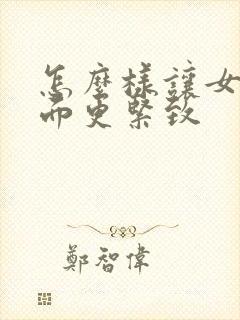 怎麼樣讓女
而更緊致
鄭智偉